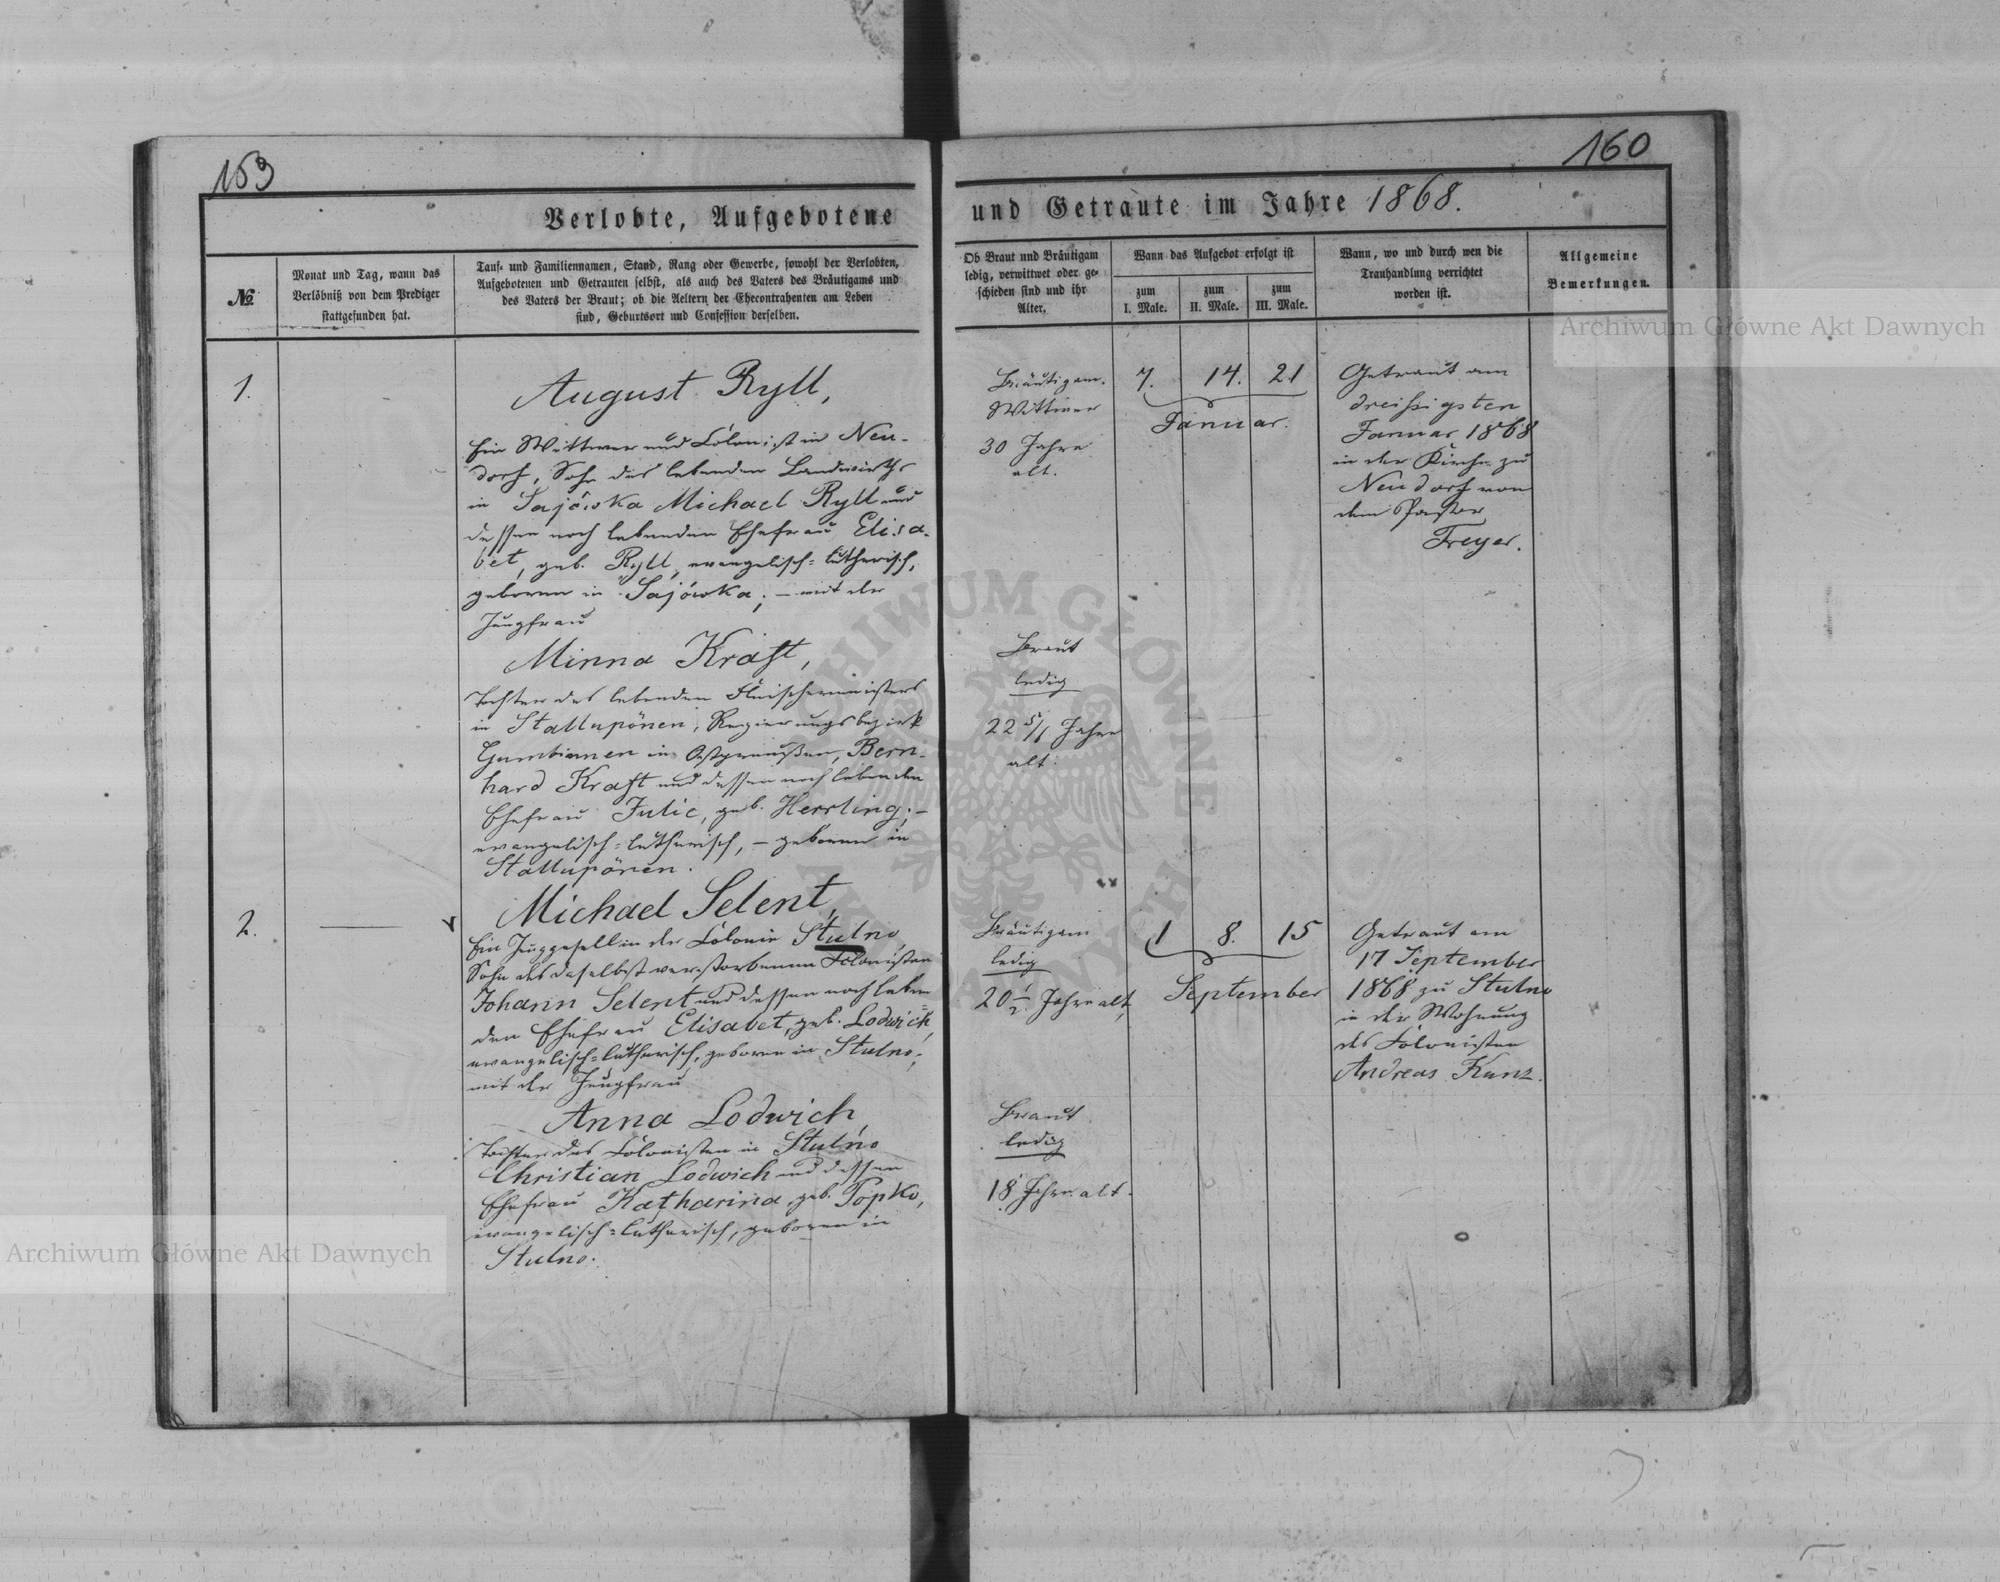 159
160
Verlobte, Aufgebotene und Getraute im Jahre 1868.
№
Monat und Tag, wann das
Verlöbniß von dem Prediger
stattgefunden hat.
Tauf- und Familiennamen, Stand, Rang oder Gewerbe, sowohl der Verlobten,
Aufgebotenen und Getrauten selbst, als auch des Vaters des Bräutigams und
des Vaters der Braut; ob die Aeltern der Ehecontrahenten am Leben
sind, Geburtsort und Confession derselben.
Ob Braut und Bräutigam
ledig, verwittwet oder ge-
schieden sind und ihr
Alter.
Wann das Aufgebot erfolgt ist
zum
I. Male.
zum
II. Male.
zum
III. Male.
Wann, wo und durch wen die
Trauhandlung verrichtet
worden ist.
Allgemeine
Bemerkungen.
1.
August Ryll,
Ein Wittwer und Colonist in Neu-
dorf, Sohn des lebenden Landwirths
in Sajówka Michael Ryll und
dessen noch lebenden Ehefrau Elisa-
bet, geb. Ryll, evangelisch-lutherisch,
geboren in Sajówka; – mit der
Jungfrau
Minna Kraft,
Tochter des lebenden Fleischermeisters
in Stallupönen, Regierungsbezirk
Gumbinnen in Ostpreußen, Bern-
hard Kraft und dessen noch lebenden
Ehefrau Julie, geb. Herrling; –
evangelisch-lutherisch, – geboren in
Stallupönen.
Bräutigam.
Wittwer
30 Jahre
alt.
Braut
ledig
22 Jahre
alt.
7. 14. 21
Januar.
Getraut am
dreißigsten
Januar 1868
in der Kirche zu
Neudorf von
dem Pastor
Freyer.
2.
Michael Selent,
Ein Junggesell in der Colonie Stulno,
Sohn des daselbst verstorbenen Colonisten
Johann Selent und dessen noch leben-
den Ehefrau Elisabet, geb. Lodwich,
evangelisch-lutherisch, geboren in Stulno;
mit der Jungfrau
Anna Lodwich
Tochter des Colonisten in Stulno
Christian Lodwich und dessen
Ehefrau Katharina, geb. Popko,
evangelisch-lutherisch, geboren in
Stulno.
Bräutigam
ledig
20 1/2 Jahre alt,
Braut
ledig
18 Jahre alt.
1 8. 15
September
Getraut am
17 September
1868 zu Stulno
in der Wohnung
des Colonisten
Andreas Kunz.
Archiwum Główne Akt Dawnych
Archiwum Główne Akt Dawnych
ARCHIWUM GŁÓWNE AKT DAWNYCH